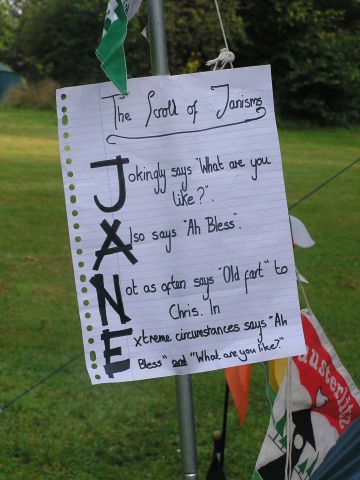 The Scroll of Janisms
Jokingly says "What are you
like?".
Also says "Ah Bless".
Not as often says "Old fart" to
Chris. In
Extreme circumstances says "Ah
Bless" and "What are you like?"